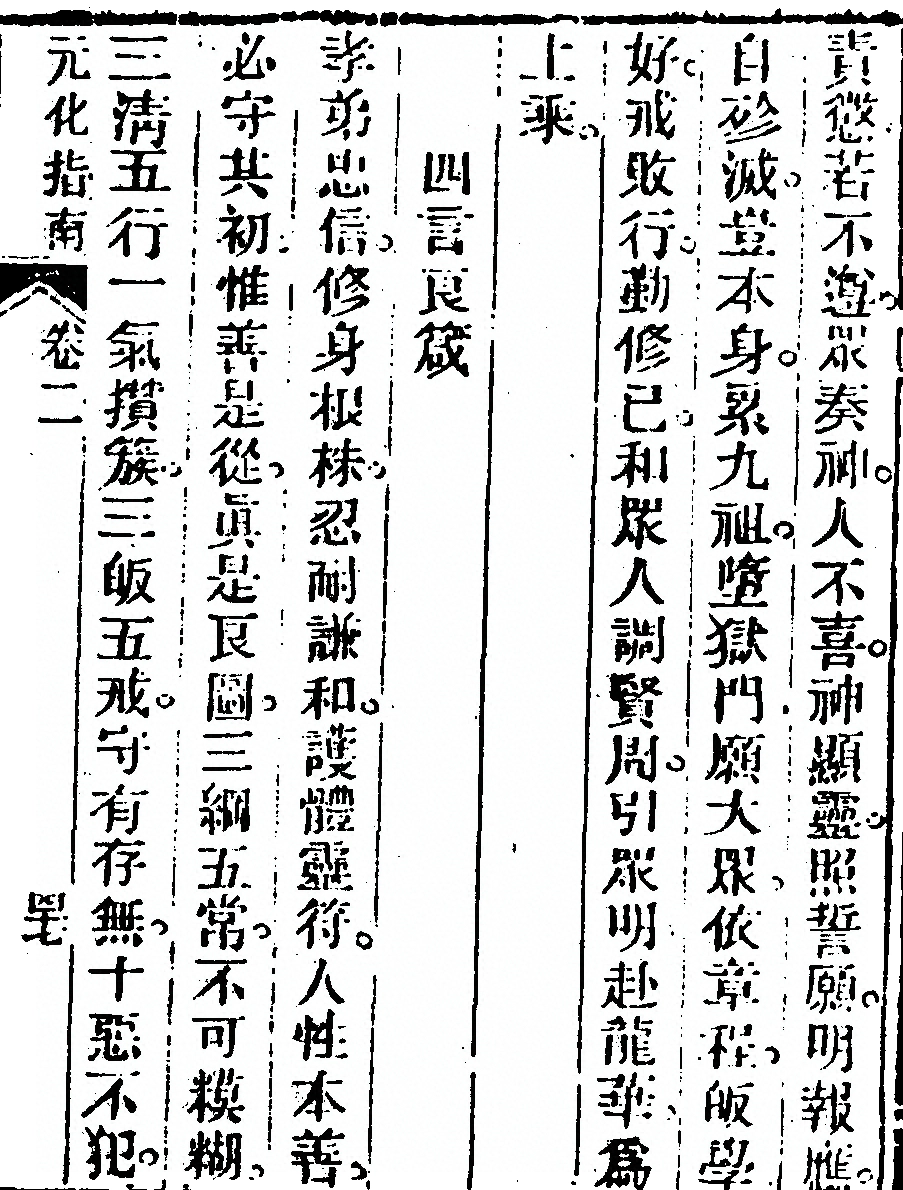 責愆若不遵眾奏神。人不喜。神顯靈。照誓願。明報應。
自殄滅。豈本身。累九祖。墮獄門、願大眾、依章程。皈學
好。戒敗行。勤修己。和眾人調賢周。引眾明赴龍華、爲
上乘。
四言良箴
孝弟忠信。修身根株。忍耐謙和。護體靈符。人性本善。
必守其初。惟善是從。眞是良圖。三綱五常。不可糢糊。
三淸五行一氣攢簇。三皈五戒。守有存無。十惡不犯。
元化指南 卷二 罕七